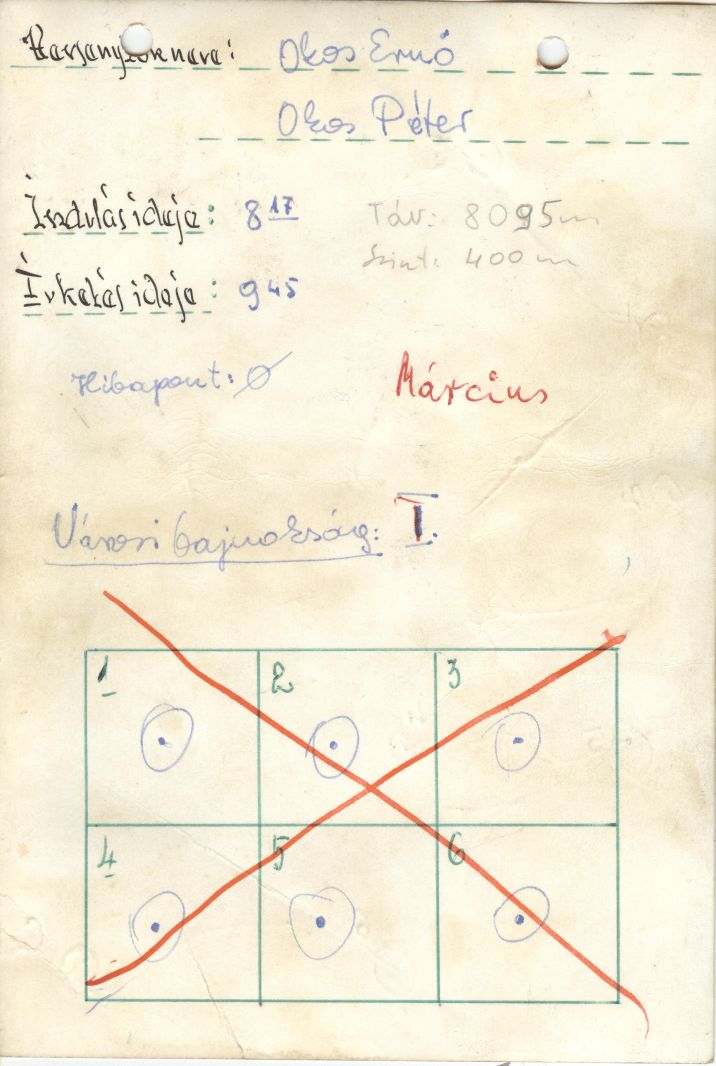 Versenyzők neve: Okos Ernő
Okos Péter
Indulás ideje: 8 17 Táv: 8095m
Szint: 400 m
Érkezés ideje: 9 45
Hibapont: Ø Március
Városi bajnokság: I.
1 2 3
4 5 6